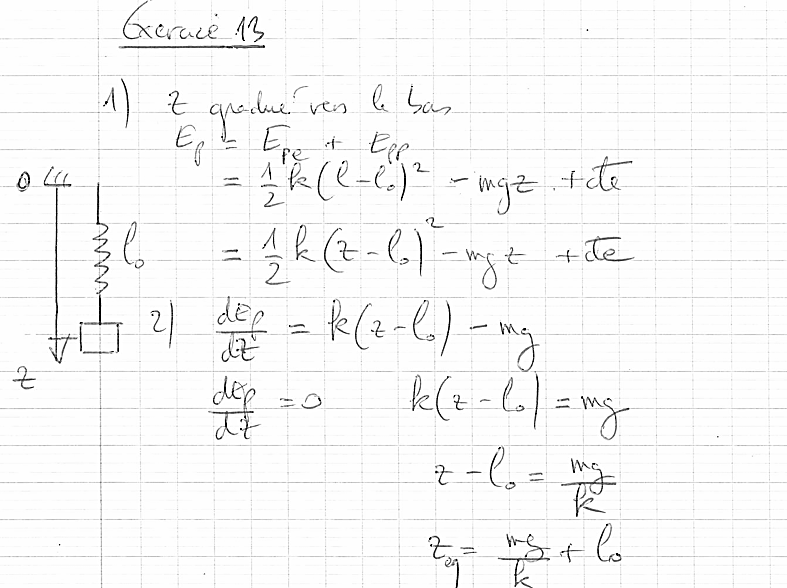 Exercice 13
1) z gradué vers le bas
Ep = Epe + Epp
= 1/2 k(l-l₀)² - mgz + cte
0
l₀
= 1/2 k(z-l₀)² - mgz + cte
2) dEp/dz = k(z-l₀) - mg
z
dEp/dz = 0 k(z-l₀) = mg
z-l₀ = mg/k
z_eq = mg/k + l₀